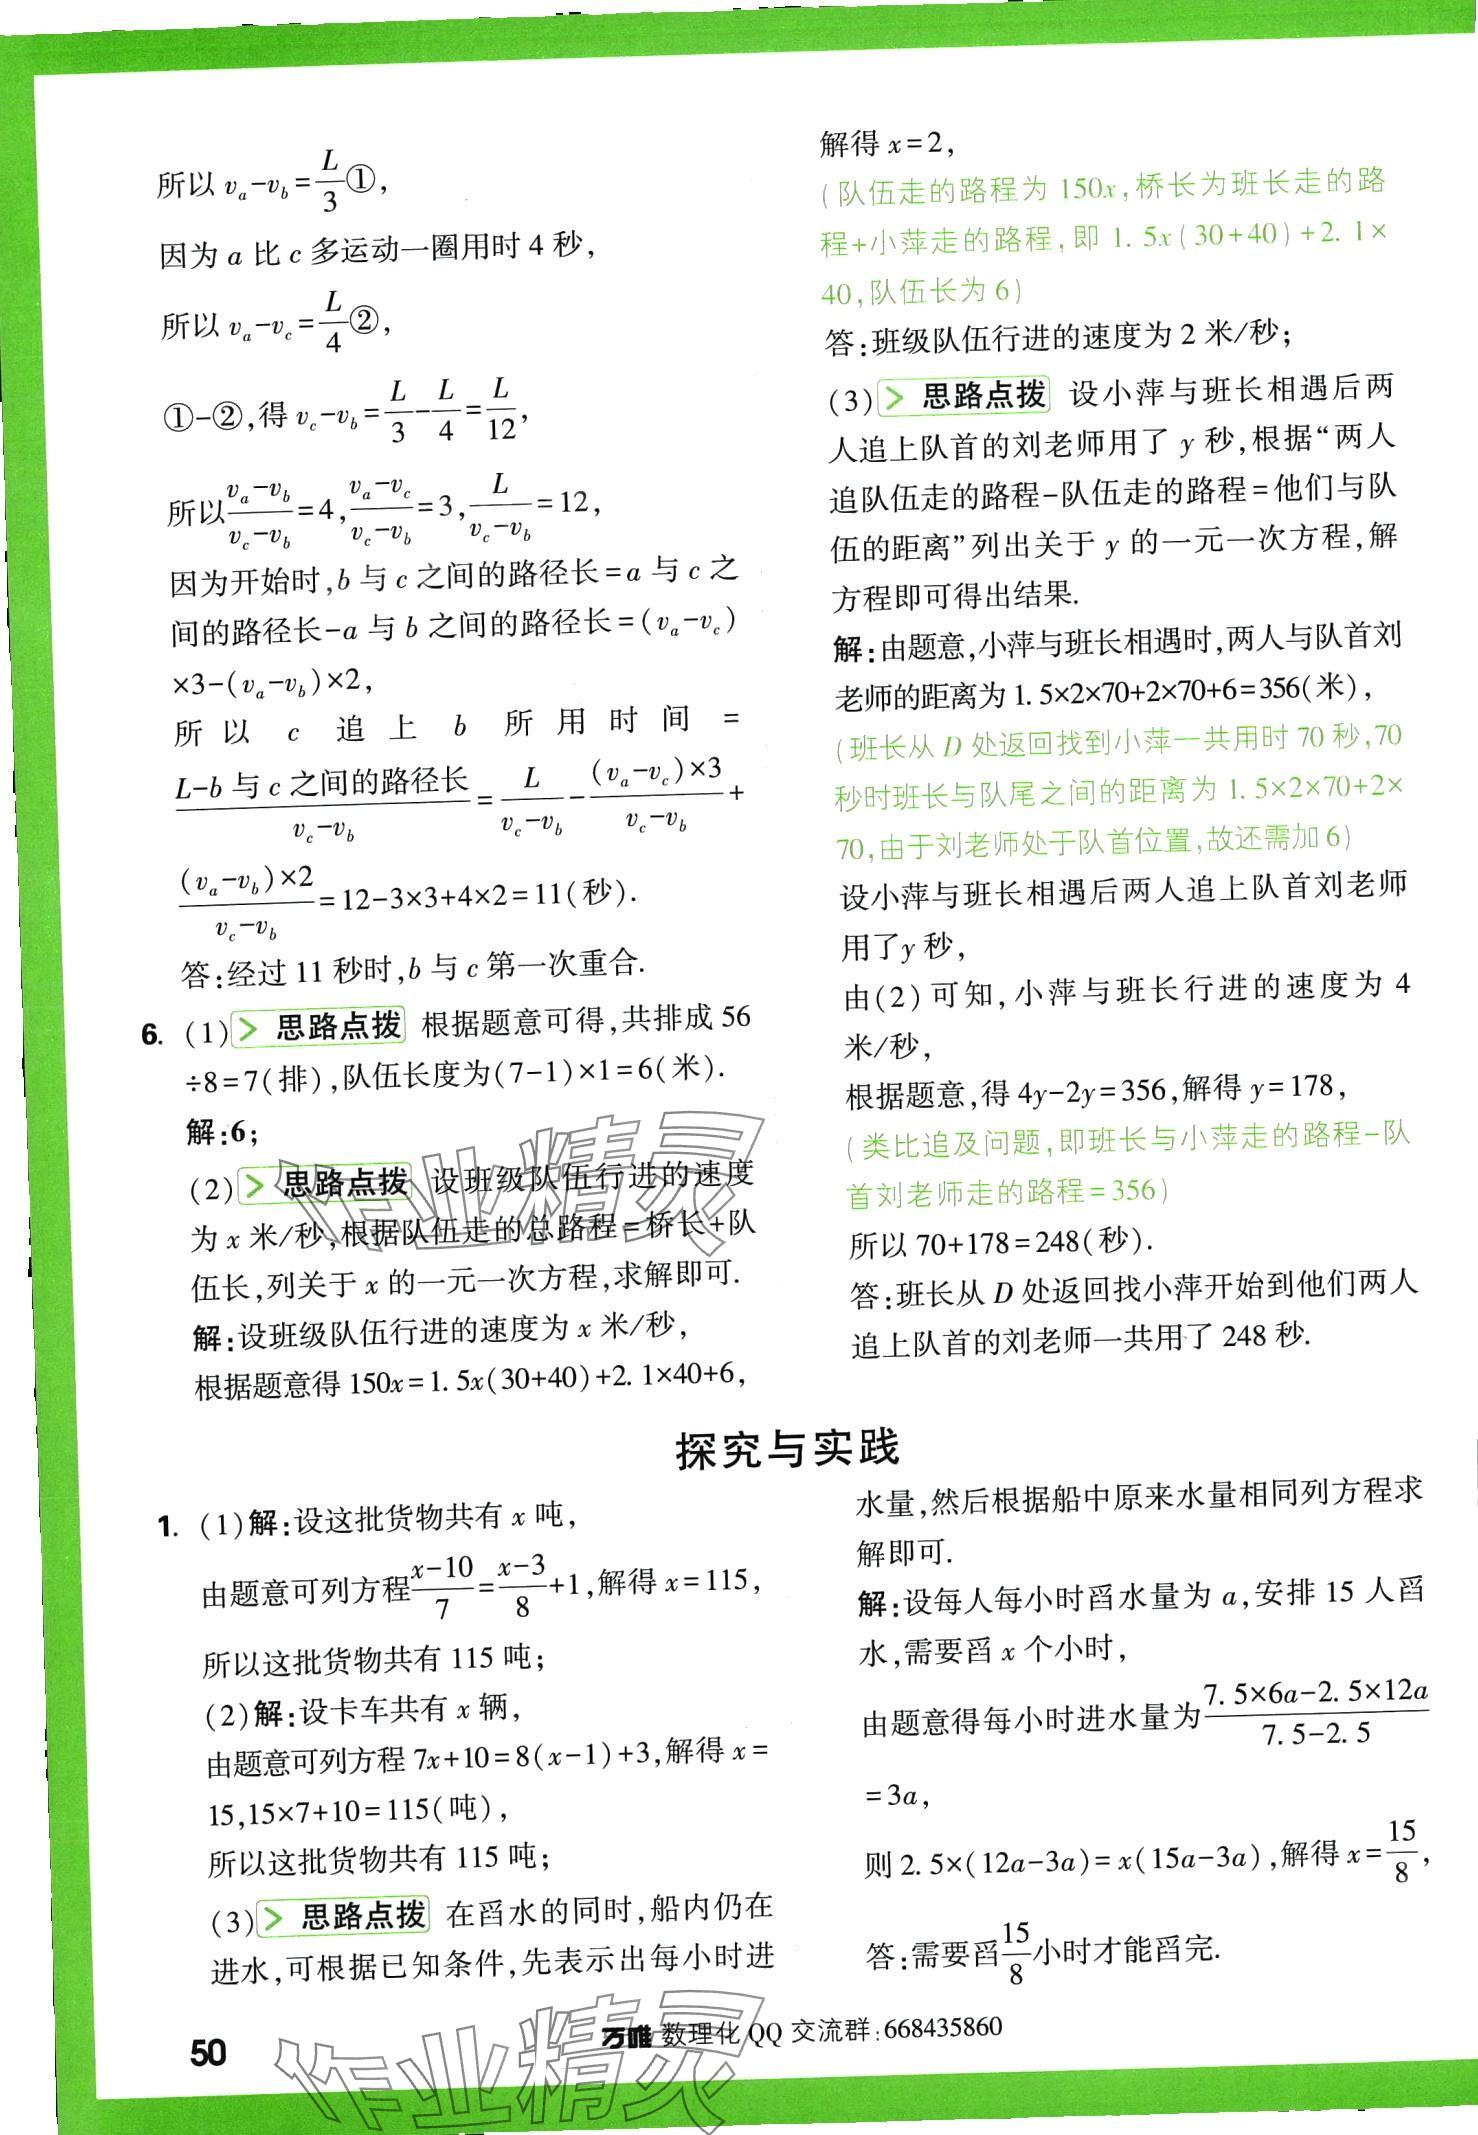 所以 vₐ-v_b=L/3①,
因为 a 比 c 多运动一圈用时 4 秒,
所以 vₐ-v_c=L/4②,
①-②,得 v_c-v_b=L/3-L/4=L/12,
所以(vₐ-v_b)/(v_c-v_b)=4,(vₐ-v_c)/(v_c-v_b)=3,L/(v_c-v_b)=12,
因为开始时,b 与 c 之间的路径长=a 与 c 之
间的路径长-a 与 b 之间的路径长=(vₐ-v_c)
×3-(vₐ-v_b)×2,
所以 c 追上 b 所用时间=
(L-b 与 c 之间的路径长)/(v_c-v_b)=L/(v_c-v_b)-(vₐ-v_c)×3/(v_c-v_b)+
(vₐ-v_b)×2/(v_c-v_b)=12-3×3+4×2=11(秒).
答:经过 11 秒时,b 与 c 第一次重合.
6. (1)> 思路点拨 根据题意可得,共排成 56
÷8=7(排),队伍长度为(7-1)×1=6(米).
解:6;
(2)> 思路点拨 设班级队伍行进的速度
为 x 米/秒,根据队伍走的总路程=桥长+队
伍长,列关于 x 的一元一次方程,求解即可.
解:设班级队伍行进的速度为 x 米/秒,
根据题意得 150x=1.5x(30+40)+2.1×40+6,
解得 x=2,
(队伍走的路程为 150x,桥长为班长走的路
程+小萍走的路程,即 1.5x(30+40)+2.1×
40,队伍长为 6)
答:班级队伍行进的速度为 2 米/秒;
(3)> 思路点拨 设小萍与班长相遇后两
人追上队首的刘老师用了 y 秒,根据“两人
追队伍走的路程-队伍走的路程=他们与队
伍的距离”列出关于 y 的一元一次方程,解
方程即可得出结果.
解:由题意,小萍与班长相遇时,两人与队首刘
老师的距离为 1.5×2×70+2×70+6=356(米),
(班长从 D 处返回找到小萍一共用时 70 秒,70
秒时班长与队尾之间的距离为 1.5×2×70+2×
70,由于刘老师处于队首位置,故还需加 6)
设小萍与班长相遇后两人追上队首刘老师
用了y 秒,
由(2)可知,小萍与班长行进的速度为 4
米/秒,
根据题意,得 4y-2y=356,解得 y=178,
(类比追及问题,即班长与小萍走的路程-队
首刘老师走的路程=356)
所以 70+178=248(秒).
答:班长从 D 处返回找小萍开始到他们两人
追上队首的刘老师一共用了 248 秒.
探究与实践
1. (1)解:设这批货物共有 x 吨,
由题意可列方程(x-10)/7=(x-3)/8+1,解得 x=115,
所以这批货物共有 115 吨;
(2)解:设卡车共有 x 辆,
由题意可列方程 7x+10=8(x-1)+3,解得 x=
15,15×7+10=115(吨),
所以这批货物共有 115 吨;
(3)> 思路点拨 在舀水的同时,船内仍在
进水,可根据已知条件,先表示出每小时进
水量,然后根据船中原来水量相同列方程求
解即可.
解:设每人每小时舀水量为 a,安排 15 人舀
水,需要舀 x 个小时,
由题意得每小时进水量为(7.5×6a-2.5×12a)/(7.5-2.5)
=3a,
则 2.5×(12a-3a)=x(15a-3a),解得 x=15/8,
答:需要舀15/8小时才能舀完.
50
万唯 数理化 QQ 交流群:668435860
作业精灵
作业精灵